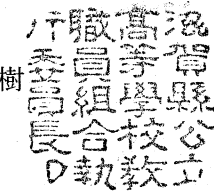 滋賀縣公立
髙等學校教
職員組合執
行委員長印
樹